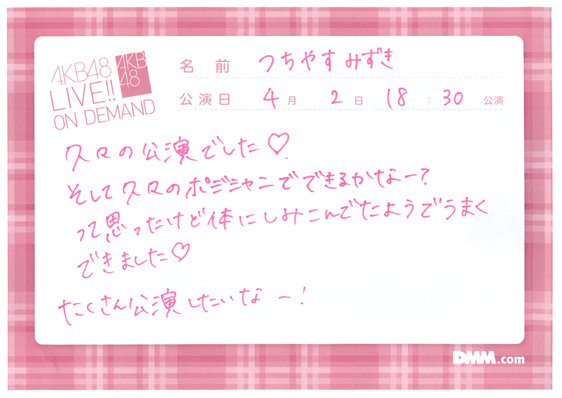 AKB48
LIVE!!
ON DEMAND
AKB
48
名 前 つちやすみずき
公演日 4月 2日 18:30 公演
久々の公演でした♡
そして久々のポジションでできるかなー?
って思ったけど体にしみこんでたようでうまく
できました♡
たくさん公演したいなー!
DMM.com